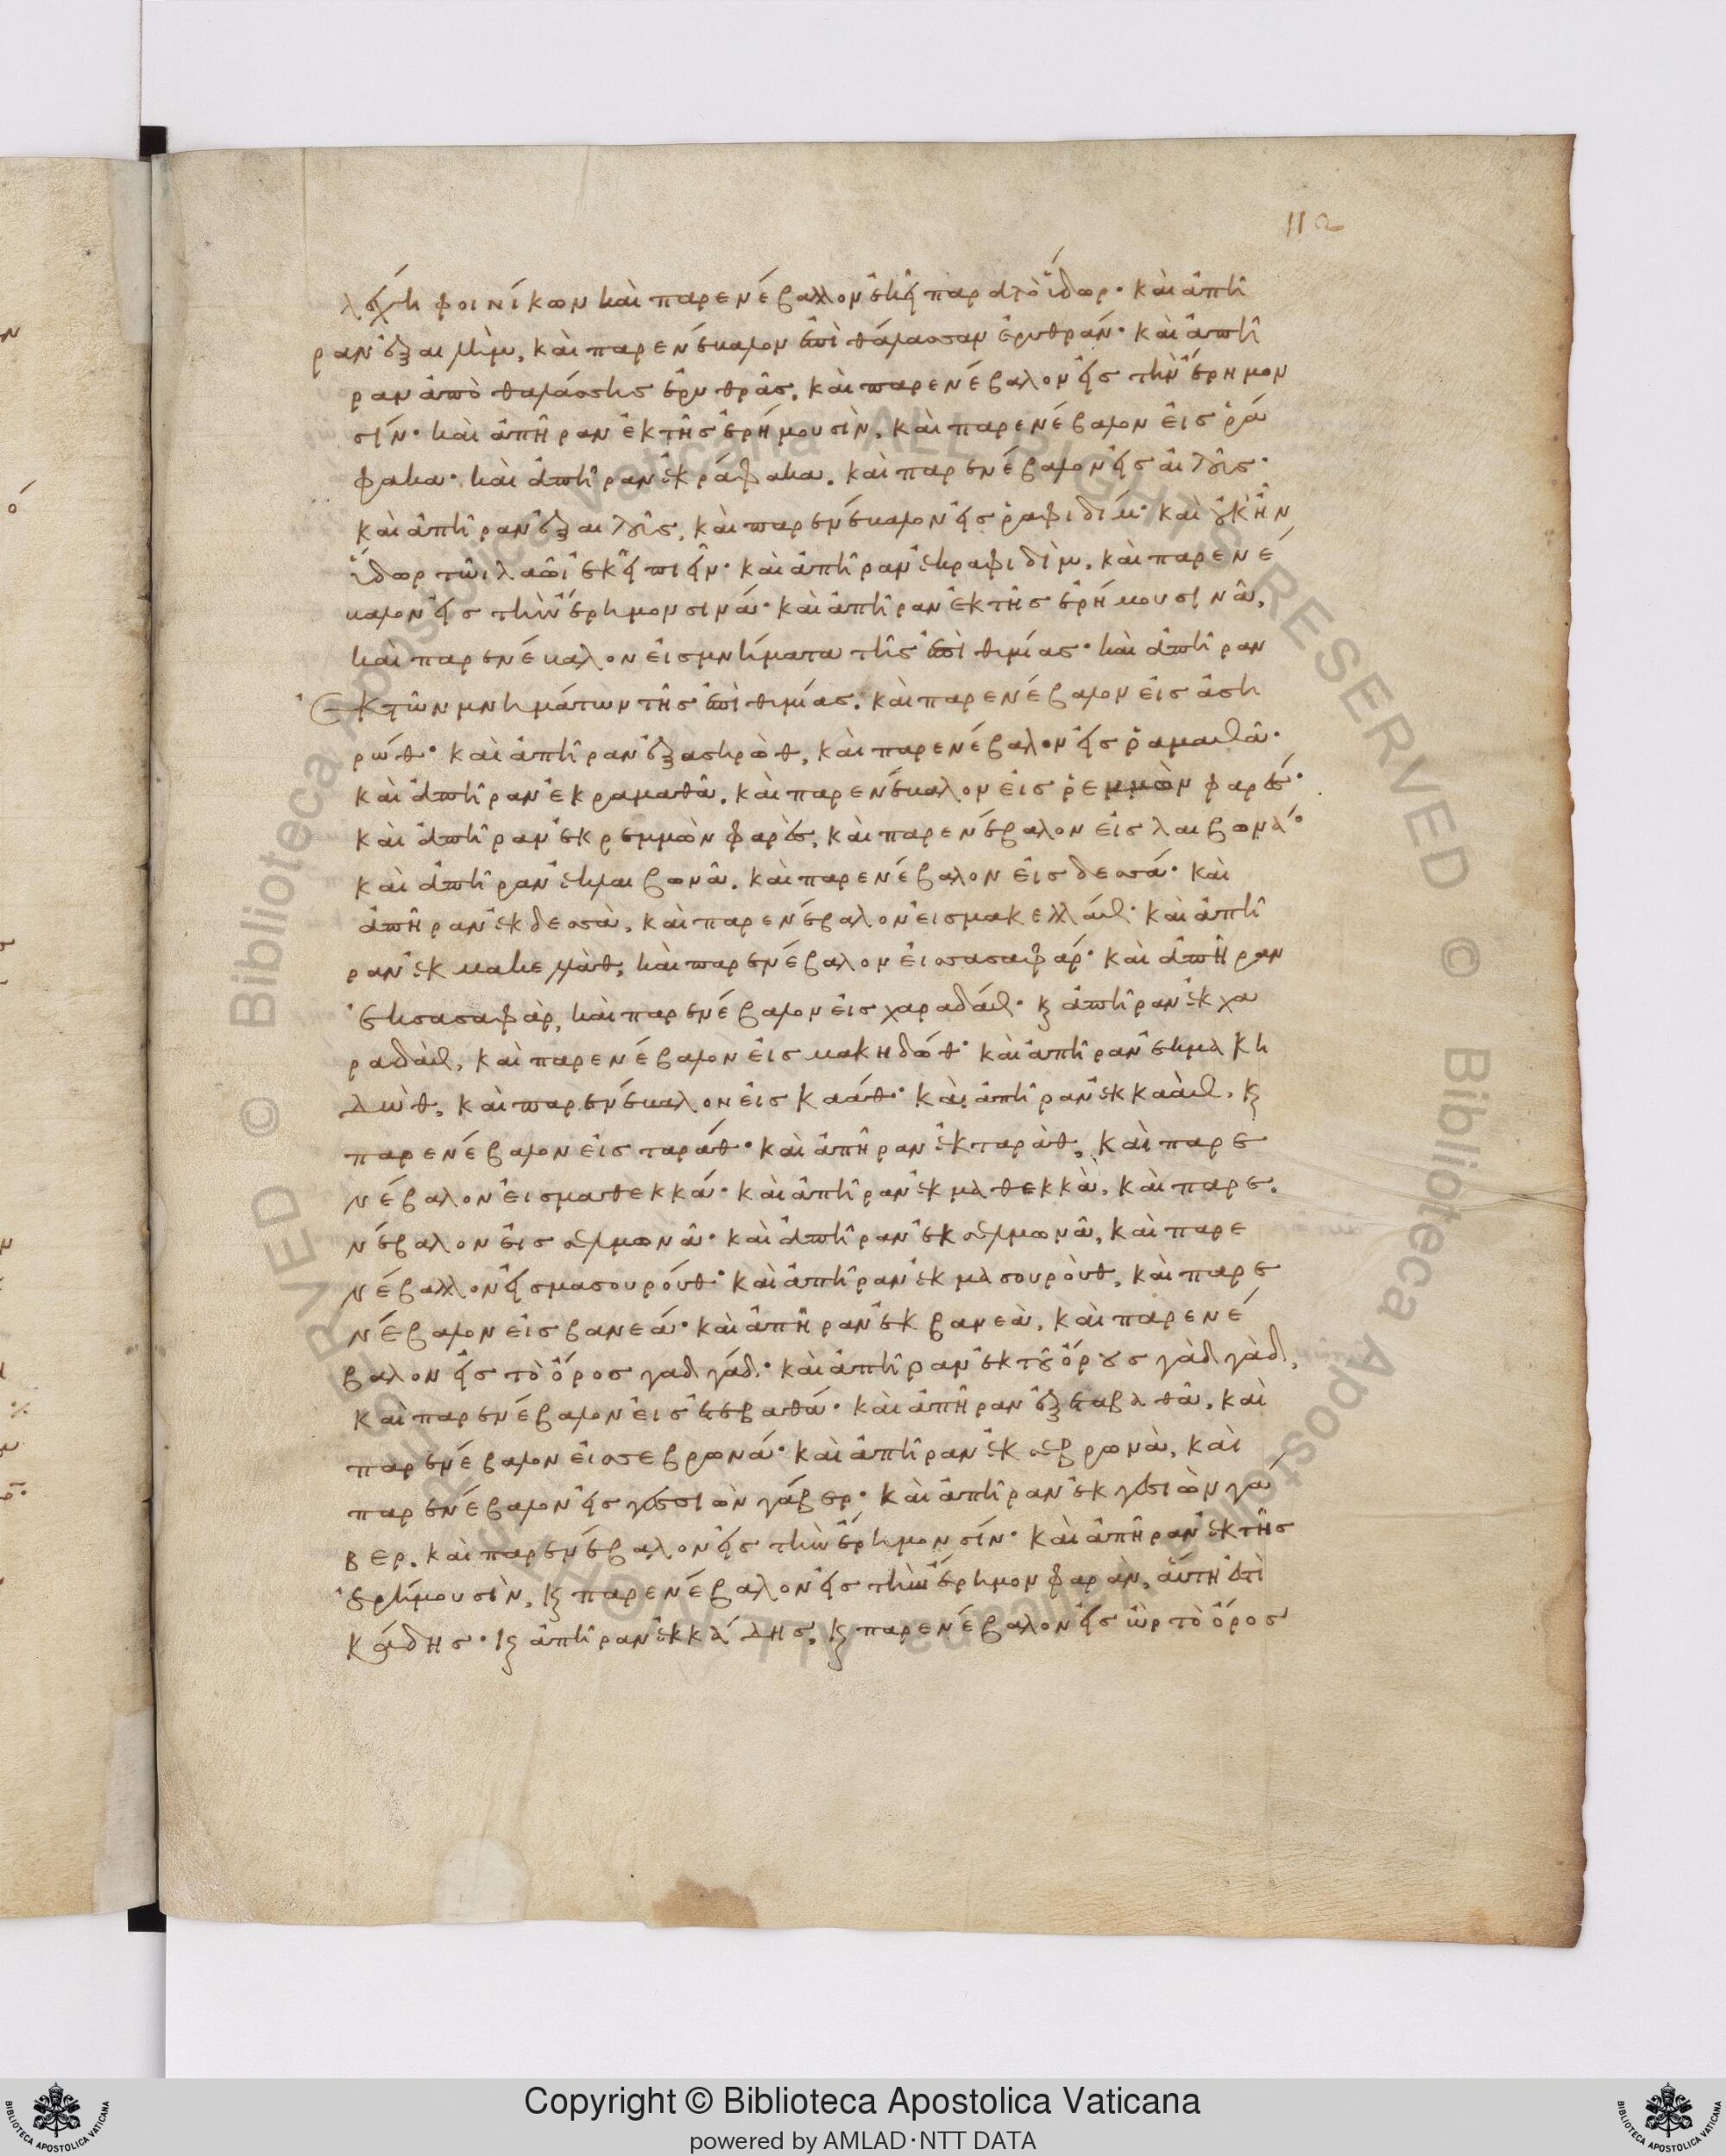 112
λέχη φοινίκων καὶ παρενέβαλλον ἐκεῖ παρὰ τὸ ὕδωρ· καὶ ἀπῆ
ραν ἐξ αιλὴμ, καὶ παρενέβαλον ἐπὶ θάλασσαν ἐρυθράν· καὶ ἀπῆ
ραν ἀπὸ θαλάσσης ἐρυθρᾶς, καὶ παρενέβαλον εἰς τὴν ἔρημον
σίν· καὶ ἀπῆραν ἐκ τῆς ἐρήμου σὶν, καὶ παρενέβαλον εἰς ῥά
φακα· καὶ ἀπῆραν ἐκ ράφακα, καὶ παρενέβαλον εἰς αἰλοῦς·
καὶ ἀπῆραν ἐξ αιλοῦς, καὶ παρενέβαλον εἰς ῥαφιδίμ· καὶ οὐκ ἦν
ὕδωρ τῶι λαῶι ἐκεῖ πιεῖν· καὶ ἀπῆραν ἐκ ραφιδὶμ, καὶ παρενέ
βαλον εἰς τὴν ἔρημον σινά· καὶ ἀπῆραν ἐκ τῆς ἐρήμου σινᾶ,
καὶ παρενέβαλον εἰς μνήματα τῆς ἐπιθυμίας· καὶ ἀπῆραν
ἐκ τῶν μνημάτων τῆς ἐπιθυμίας, καὶ παρενέβαλον εἰς ἀση
ρώθ· καὶ ἀπῆραν ἐξ ασηρὼθ, καὶ παρενέβαλον εἰς ῥαμαθᾶ·
καὶ ἀπῆραν ἐκ ραμαθᾶ, καὶ παρενέβαλον εἰς ῥεμμὼν φαρές·
καὶ ἀπῆραν ἐκ ρεμμὼν φαρὲς, καὶ παρενέβαλον εἰς λαιβωνά·
καὶ ἀπῆραν ἐκ λαιβωνᾶ, καὶ παρενέβαλον εἰς δεσσά· καὶ
ἀπῆραν ἐκ δεσσὰ, καὶ παρενέβαλον εἰς μακελλάθ· καὶ ἀπῆ
ραν ἐκ μακελλὰθ, καὶ παρενέβαλον εἰς σασαφάρ· καὶ ἀπῆραν
ἐκ σασαφὰρ, καὶ παρενέβαλον εἰς χαραδάθ· κ ἀπῆραν ἐκ χα
ραδὰθ, καὶ παρενέβαλον εἰς μακηδώθ· καὶ ἀπῆραν ἐκ μακη
λὼθ, καὶ παρενέβαλον εἰς καάθ· καὶ ἀπῆραν ἐκ καὰθ, κ
παρενέβαλον εἰς ταράθ· καὶ ἀπῆραν ἐκ ταρὰθ, καὶ παρε
νέβαλον εἰς μαθεκκά· καὶ ἀπῆραν ἐκ μαθεκκὰ, καὶ παρε
νέβαλον εἰς σελμωνᾶ· καὶ ἀπῆραν ἐκ σελμωνᾶ, καὶ παρε
νέβαλλον εἰς μασουρούθ· καὶ ἀπῆραν ἐκ μασουροὺθ, καὶ παρε
νέβαλον εἰς βανεά· καὶ ἀπῆραν ἐκ βανεὰ, καὶ παρενέ
βαλον εἰς τὸ ὄρος γαδγάδ· καὶ ἀπῆραν ἐκ τοῦ ὄρους γὰδγὰδ,
καὶ παρενέβαλον εἰς ἐτεβαθά· καὶ ἀπῆραν ἐξ εταβαθᾶ, καὶ
παρενέβαλον εἰς σεβρωνά· καὶ ἀπῆραν ἐκ σεβρωνὰ, καὶ
παρενέβαλον εἰς γεσσιὼν γάβερ· καὶ ἀπῆραν ἐκ γεσιὼν γά
βερ, καὶ παρενέβαλον εἰς τὴν ἔρημον σίν· καὶ ἀπῆραν ἐκ τῆς
ἐρήμου σὶν, κ παρενέβαλον εἰς τὴν ἔρημον φαρὰν, αὕτη ἐστὶ
κάδης· κ ἀπῆραν ἐκ κάδης, κ παρενέβαλον εἰς ὢρ τὸ ὄρος
Copyright © Biblioteca Apostolica Vaticana
powered by AMLAD·NTT DATA